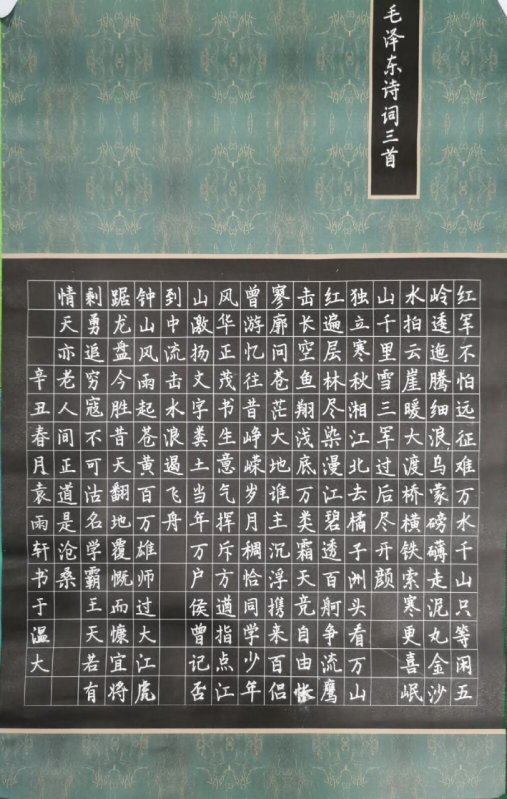 毛泽东诗词三首
红军不怕远征难万水千山只等闲五
岭逶迤腾细浪乌蒙磅礴走泥丸金沙
水拍云崖暖大渡桥横铁索寒更喜岷
山千里雪三军过后尽开颜
独立寒秋湘江北去橘子洲头看万山
红遍层林尽染漫江碧透百舸争流鹰
击长空鱼翔浅底万类霜天竞自由怅
寥廓问苍茫大地谁主沉浮携来百侣
曾游忆往昔峥嵘岁月稠恰同学少年
风华正茂书生意气挥斥方遒指点江
山激扬文字粪土当年万户侯曾记否
到中流击水浪遏飞舟
钟山风雨起苍黄百万雄师过大江虎
踞龙盘今胜昔天翻地覆慨而慷宜将
剩勇追穷寇不可沽名学霸王天若有
情天亦老人间正道是沧桑
辛丑春月袁雨轩书于温大